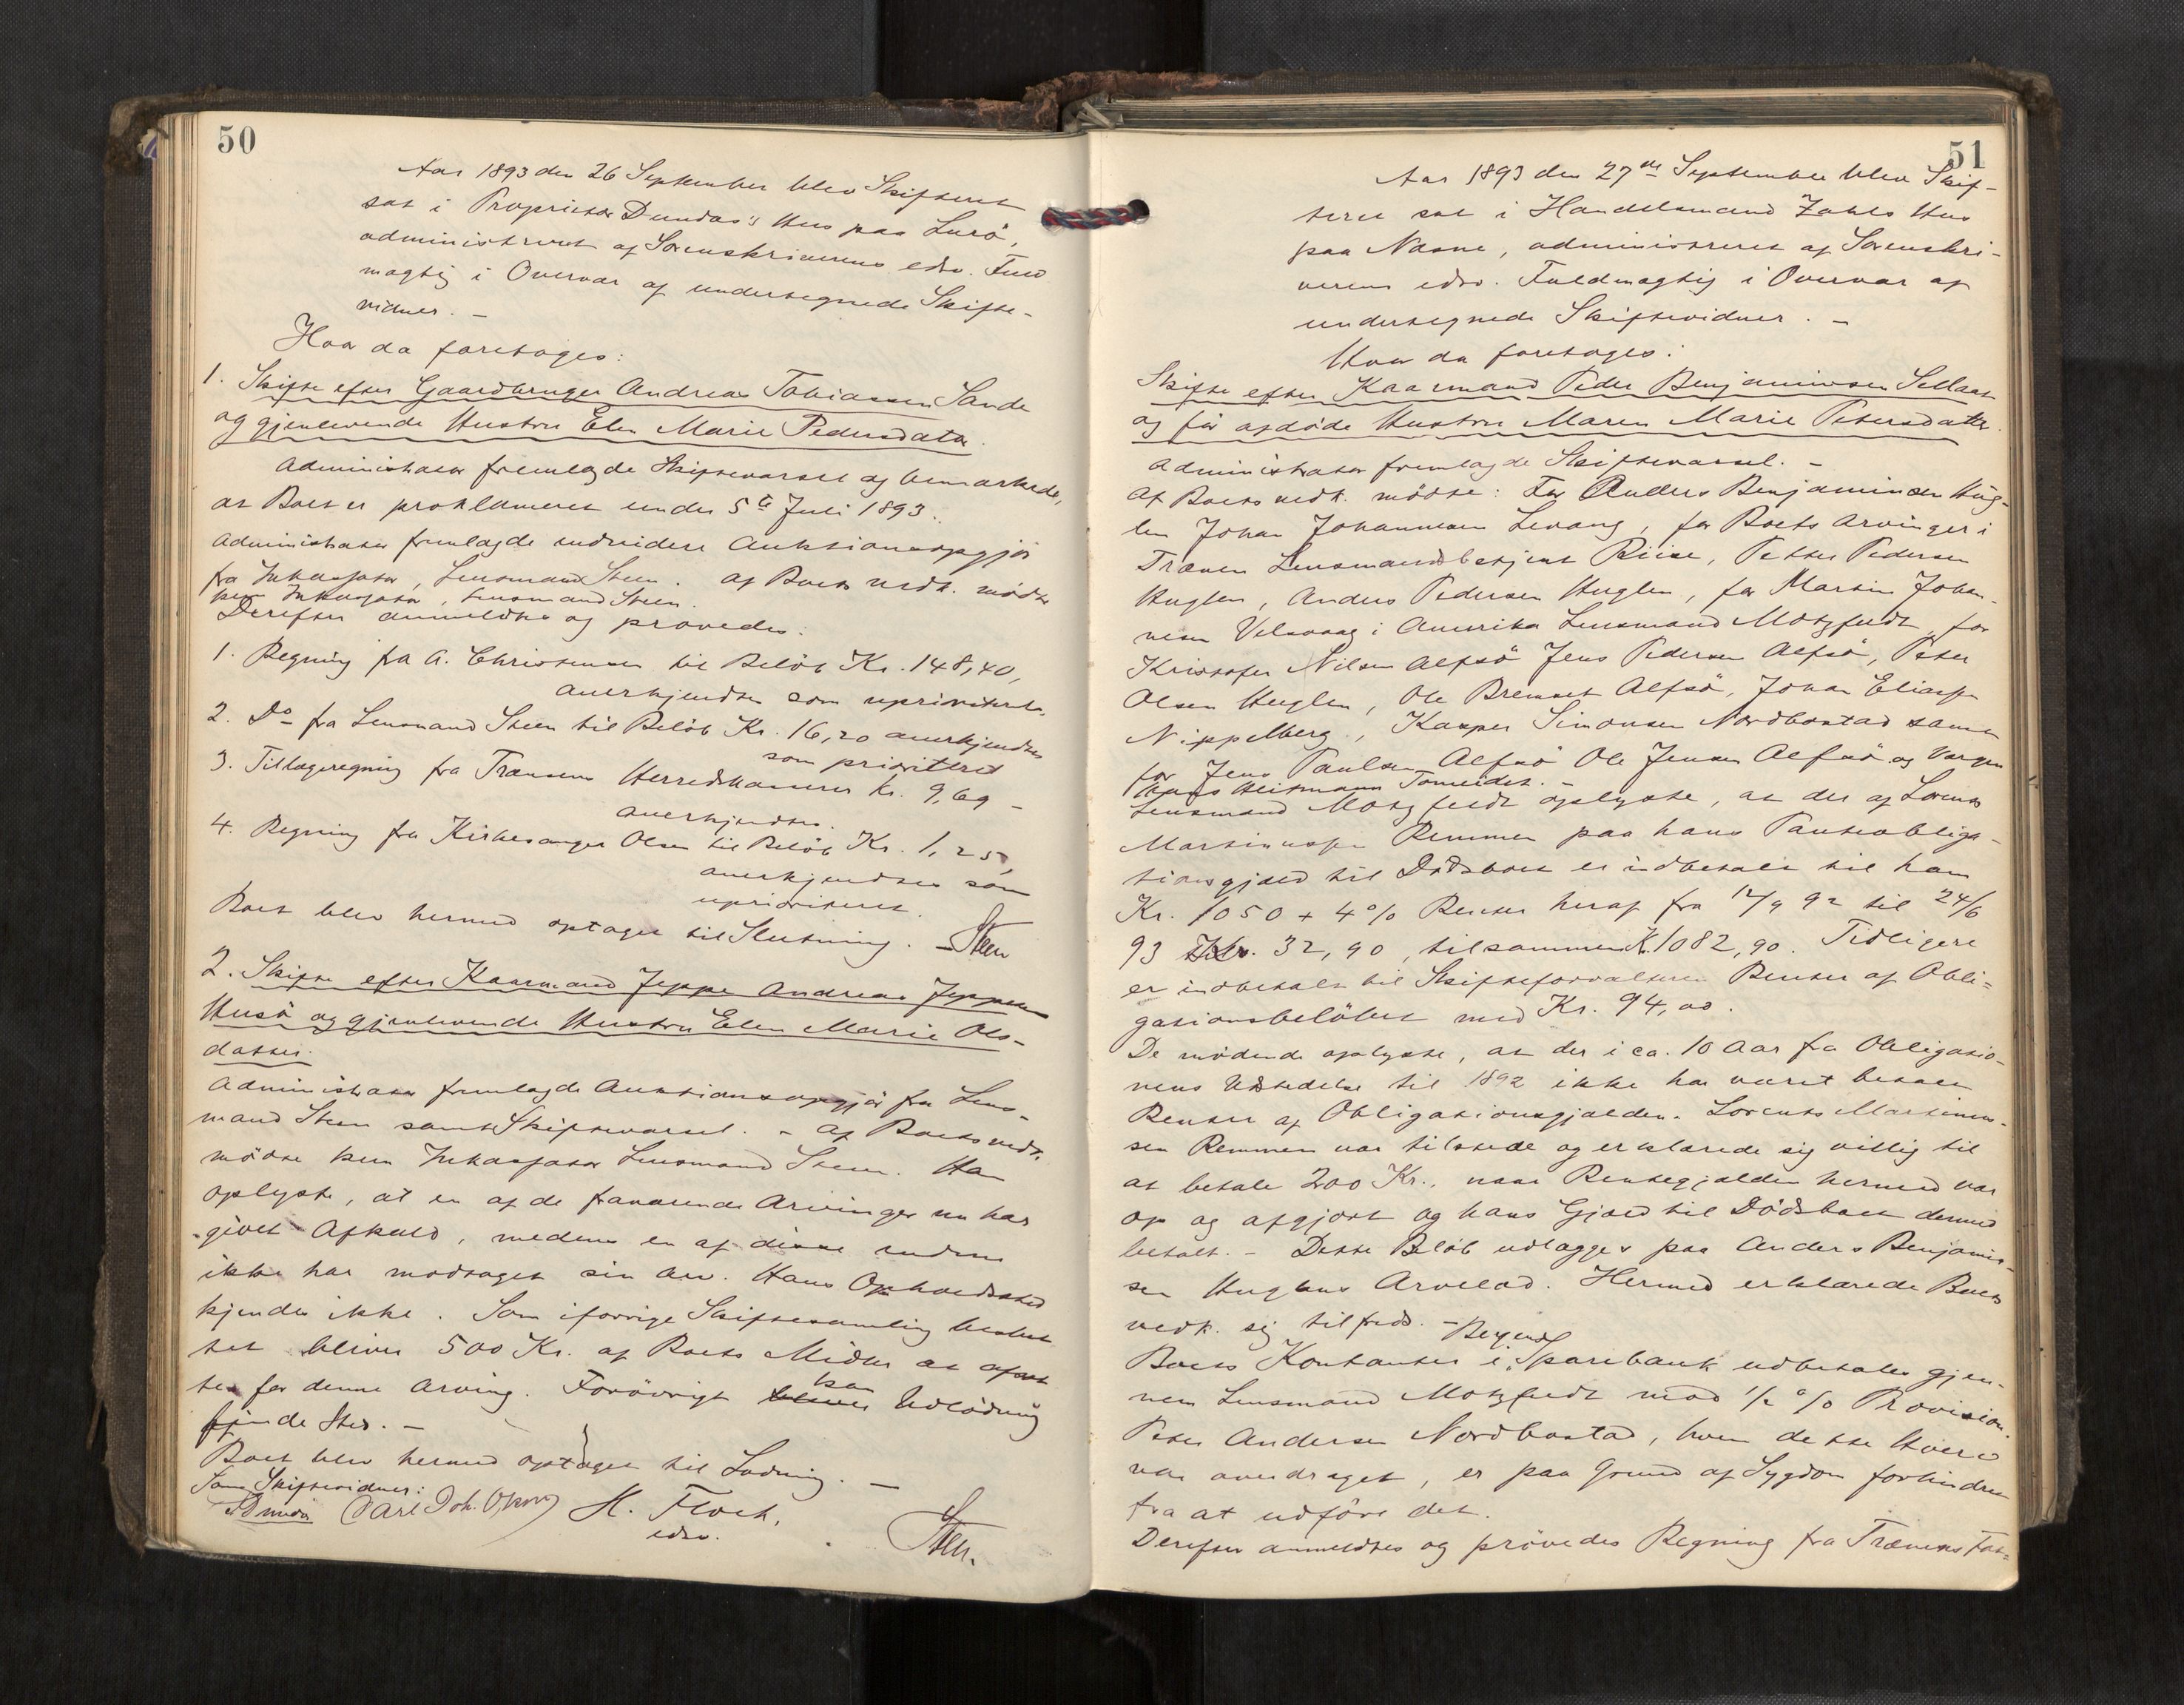 50
Aar 1893 den 26 September blev Skifteret
sat i Proprietær Dundas's Hus paa Lurö,
administreret af Sorenskriverens edsv. Fuld
mægtig i Overvær af undertegnede Skifte-
vidner. –
Hvor da foretoges:
1. Skifte efter Gaardbruger Andreas Tobiassen Sande
og gjenlevende Hustru Elen Marie Pedersdatter.
Administrator fremlagde Skiftevarsel og bemærkede,
at Boet er proklameret under 5te Juli 1893.
Administrator fremlagde endvidere Auktionsopgjör
fra Inkassator, Lensmand Steen. Af Boets vedk. mödte
kun Inkassator, Lensmand Steen.
Derefter anmeldtes og prövedes:
1. Regning fra A. Christensen til Belöb Kr. 148,40,
anerkjendtes som uprioriteret.
2. Do fra Lensmand Steen til Belöb Kr. 16,20 anerkjendtes
som prioriteret
3. Tillægsregning fra Trænens Herredskasserer Kr. 9,69 –
anerkjendtes.
4. Regning fra Kirkesanger Olsen til Belöb Kr. 1,25,
anerkjendtes som
uprioriteret.
Boet blev hermed optaget til Slutning. – Steen
2. Skifte efter Kaarmand Jeppe Andreas Jeppesen
Husö og gjenlevende Hustru Elen Marie Ols-
datter.
Administrator fremlagde Auktionsopgjör fra Lens-
mand Steen samt Skiftevarsel. – Af Boets vedk.
mödte kun Inkassator Lensmand Steen. Han
oplyste, at en af de fraværende Arvinger nu har
givet Afkald, medens en af disse endnu
ikke har modtaget sin Arv. Hans Opholdssted
kjendes ikke. Som i forrige Skiftesamling beslut
tet bliver 500 Kr. af Boets Midler at afsæt
tes for denne Arving. Forövrigt kan Udlodning
finde Sted. –
Boet blev hermed optaget til Lodning. –
Som Skiftevidner:
Carl Joh. Olsen H. Floch, Steen.
edsv.
51
Aar 1893 den 27de September blev Skif-
teret sat i Handelsmand Zahls Hus
paa Næsne, administreret af Sorenskri-
verens edsv. Fuldmægtig i Overvær af
undertegnede Skiftevidner. –
Hvor da foretoges:
Skifte efter Kaarmand Peder Benjaminsen Selvaat
og för afdöde Hustru Maren Marie Petersdatter.
Administrator fremlagde Skiftevarsel. –
Af Boets vedk. mödte: For Anders Benjaminsen Hug-
len Johan Johannesen Levang, for Boets Arvinger i
Trænen Lensmandsbetjent Riise, Petter Pedersen
Huglen, Anders Pedersen Huglen, for Martin Johan-
nesen Velsvaag i Amerika Lensmand Motzfeldt, for
Kristofer Nilsen Alfsö Jens Pedersen Alfsö, Peter
Olsen Huglen, Ole Bremset Alfsö, Johan Eliassen
Nippelberg, Kasper Simonsen Nordbostad samt
for Jens Paulsen Alfsö Ole Jensen Alfsö og
Hans Heitmann Tomeidet. –
Lensmand Motzfeldt oplyste, at der af Lorents
Martinussen Remmen paa hans Panteobliga-
tionsgjæld til Dödsboet er indbetalt til ham
Kr. 1050 + 4% Renter heraf fra 12/9 92 til 24/6
93 Kr. 32,90, tilsammen K. 1082,90. Tidligere
er indbetalt til Skifteforvalteren Renter af Obli=
gationsbelöbet med Kr. 94,00.
De mödende oplyste, at der i ca. 10 Aar fra Obligatio-
nens Udstedelse til 1892 ikke har været betalt
Renter af Obligationsgjælden. Lorents Martinus-
sen Remmen var tilstede og erklærede sig villig til
at betale 200 Kr., naar Rentegjælden hermed var
op og afgjort og hans Gjæld til Dödsboet dermed
betalt. – Dette Belöb udlægges paa Anders Benjamin-
sen Huglens Arvelod. Hermed erklærede Boets
vedk. sig tilfreds. –
Boets Kontanter i Bergens Sparebank udbetales gjen-
nem Lensmand Motzfeldt mod 1/2 % Provision.
Peter Andersen Nordbostad, hvem dette Hverv
var overdraget, er paa Grund af Sygdom forhindret
fra at udföre det.
Derefter anmeldtes og prövedes Regning fra Trænens Fat=